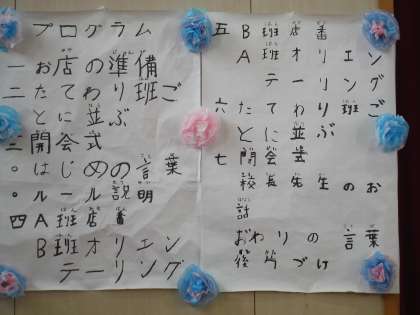 プログラム
一 お店の準備
二 たてわり班ご
とに並ぶ
三 開会式
○はじめの言葉
○ルール説明
四 A班店番
B班オリエン
テーリング
五 B班店番
A班オリエン
テーリング
六 たてわり班ご
とに並ぶ
七 閉会式
校長先生のお
話
おわりの言葉
後片づけ